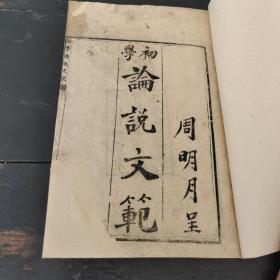 初學
論說文範
周明月呈